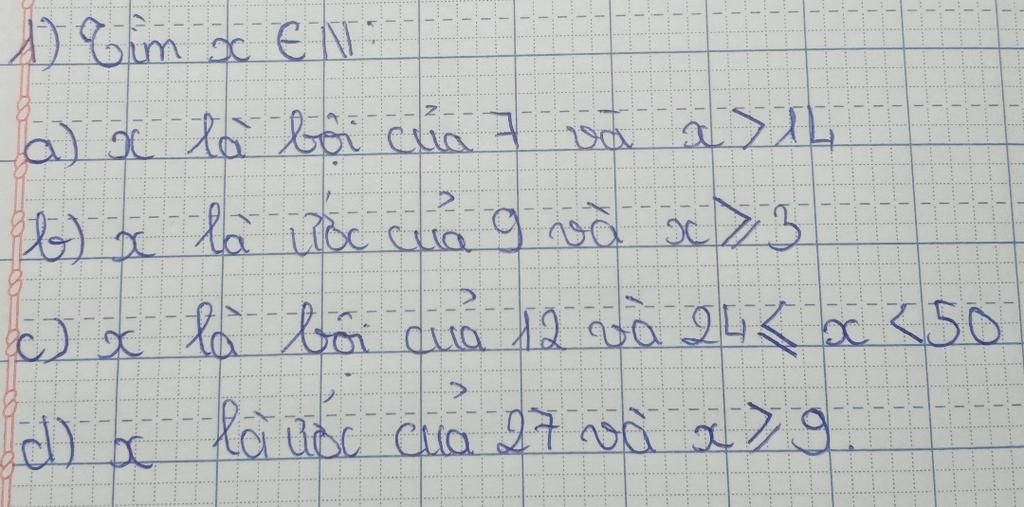 1) Tìm x ∈ N:
a) x là bội của 7 và x > 14
b) x là ước của 9 và x ⩾ 3
c) x là bội của 12 và 24 ⩽ x < 50
d) x là ước của 27 và x ⩾ 9.